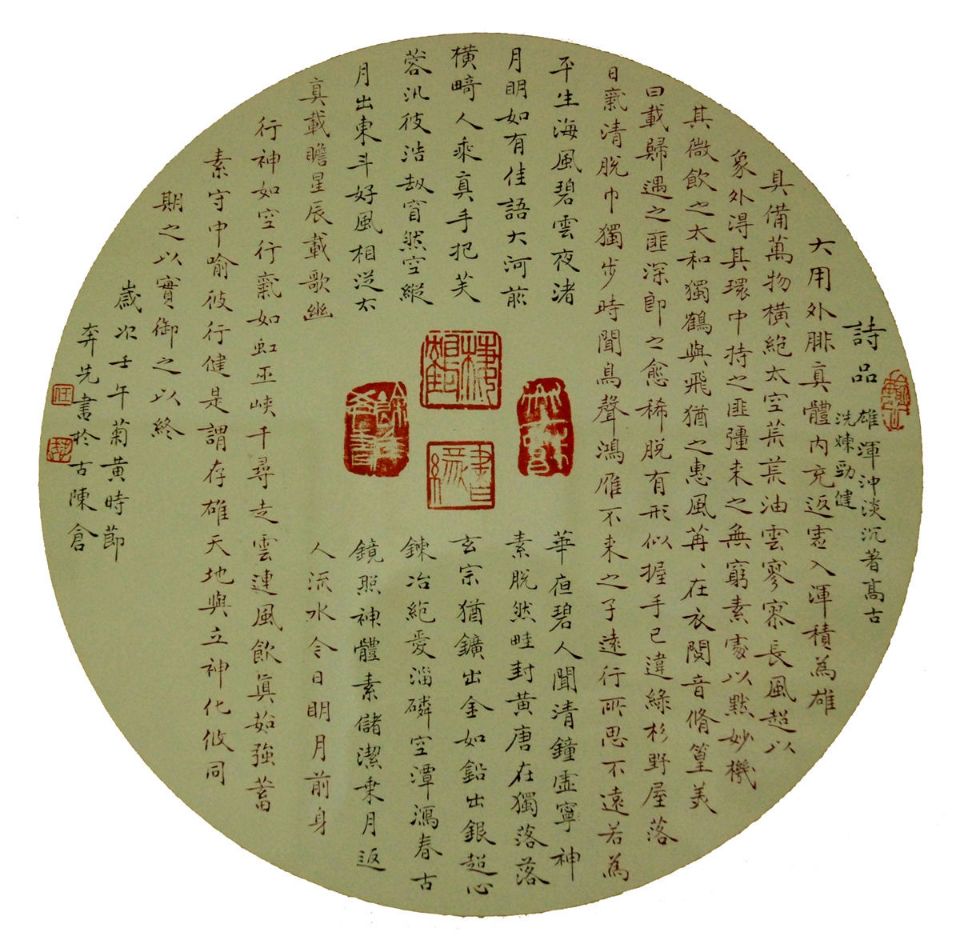 詩品
雄渾沖淡沉著高古
洗煉勁健
大用外腓真體内充返虛入渾積為雄
具備萬物橫絶太空荒荒油雲寥寥長風超以
象外得其環中持之匪彊来之無窮素處以默妙機
其微飲之太和獨鶴與飛猶之惠風苒、在衣閱音脩篁美
曰載歸遇之匪深即之愈稀脱有形似握手已違綠杉野屋落
日氣清脱巾獨步時聞鳥聲鴻雁不来之子遠行所思不遠若為
平生海風碧雲夜渚
月明如有佳語大河前
橫畸人乘真手把芙
蓉汎彼浩劫窅然空縱
月出東斗好風相從太
真載瞻星辰載歌幽
華夜碧人聞清鐘虛寧神
素脱然畦封黄唐在獨落落
玄宗猶鑛出金如鉛出銀超心
鍊冶絕愛淄磷空潭瀉春古
鏡照神體素儲潔乗月返
人流水今日明月前身
行神如空行氣如虹巫峽千尋走雲連風飲真茹強蓄
素守中喻彼行健是謂存雄天地與立神化攸同
期之以實御之以終
歲次壬午菊黄時節
奔先書於古陳倉